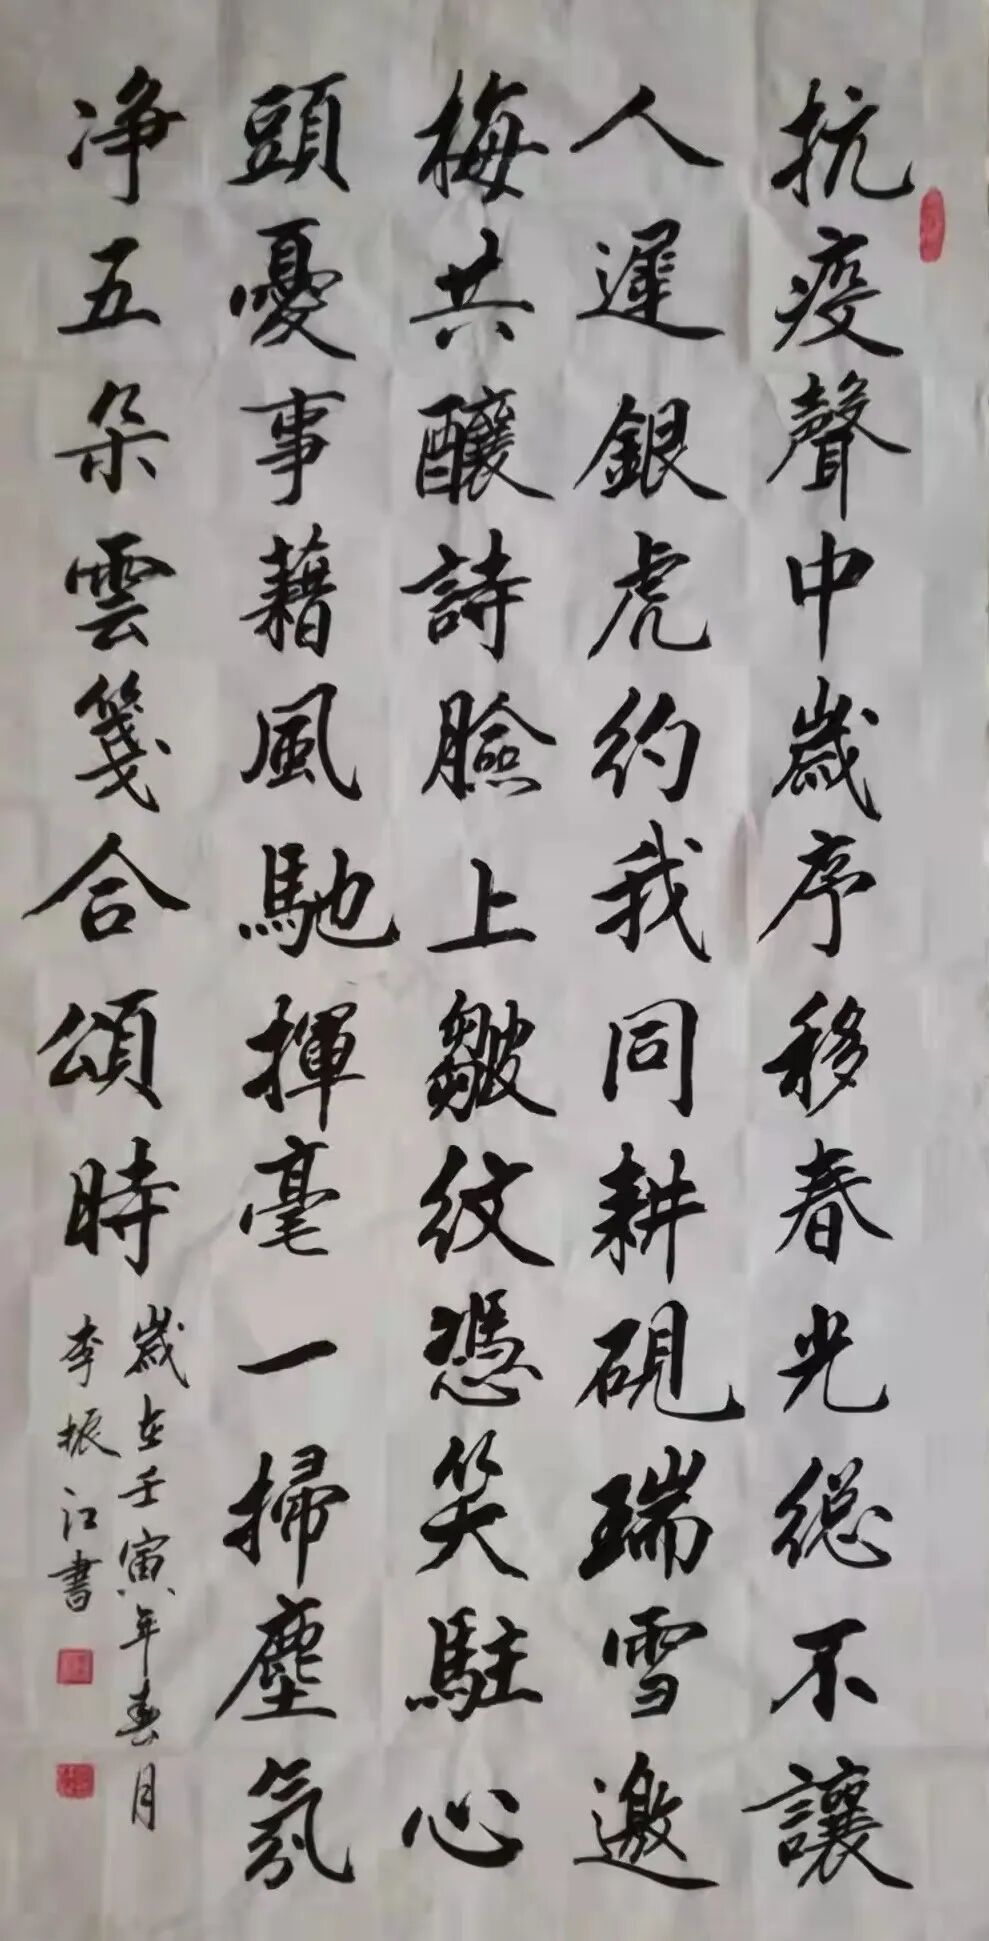 抗疫聲中歲序移春光總不讓
人遲銀虎約我同耕硯瑞雪邀
梅共釀詩臉上皺紋憑笑駐心
頭憂事藉風馳揮毫一掃塵氛
净五朵雲箋合頌時
歲在壬寅年春月
李振江書